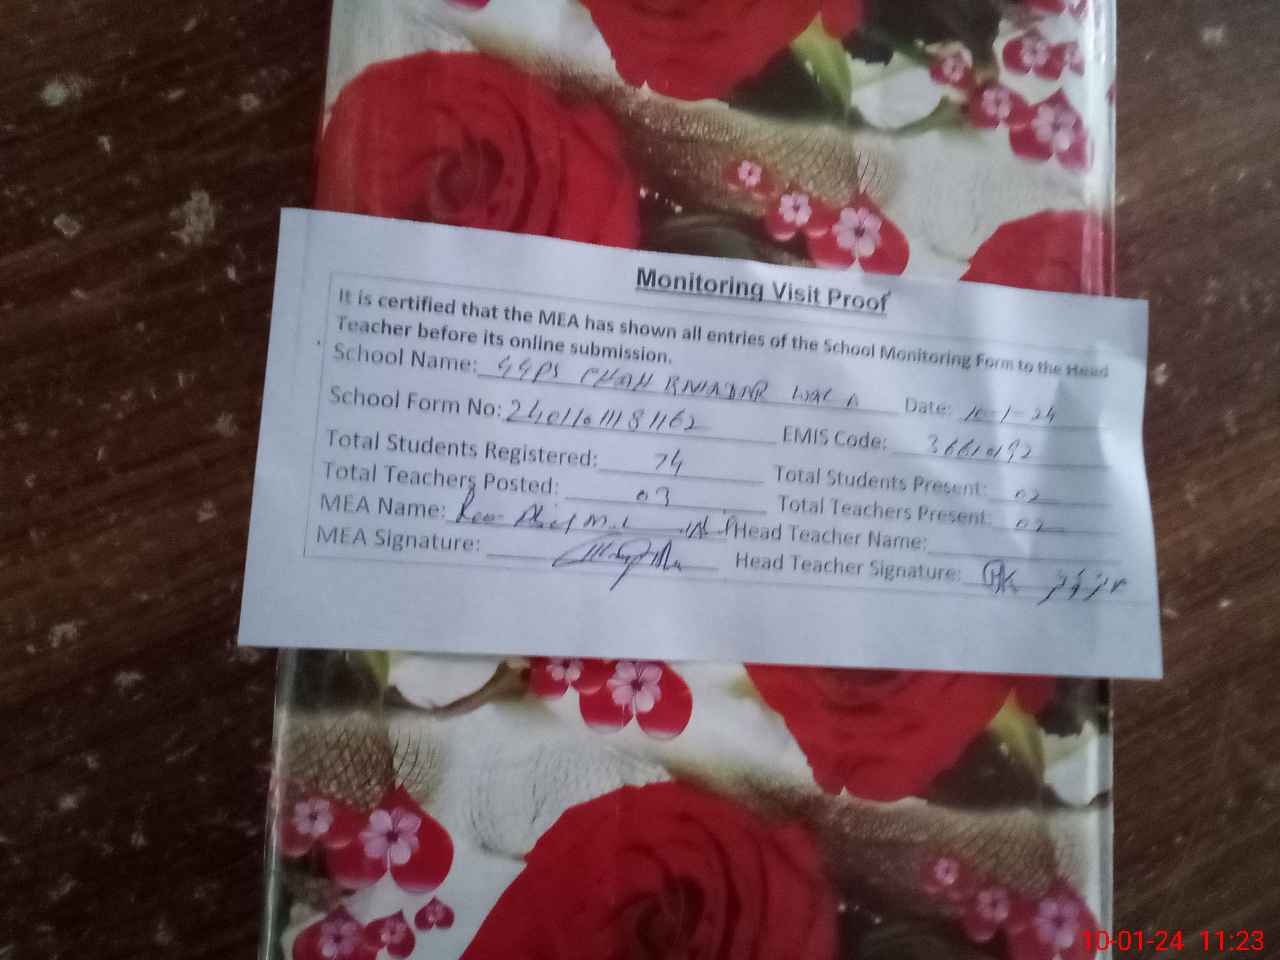 Monitoring Visit Proof
It is certified that the MEA has shown all entries of the School Monitoring Form to the Head
Teacher before its online submission.
School Name: GGPS CHAH Date: 10-1-24
School Form No: EMIS Code: 36610192
Total Students Registered: 74 Total Students Present: 02
Total Teachers Posted: 03 Total Teachers Present: 02
MEA Name: Head Teacher Name:
MEA Signature: Head Teacher Signature:
10-01-24 11:23